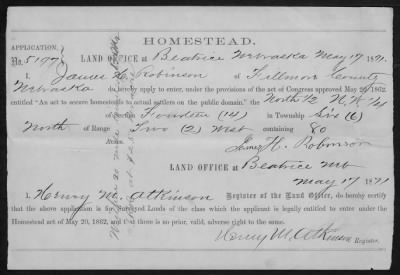 HOMESTEAD.
APPLICATION,
No. 5197
LAND OFFICE at Beatrice Nebraska May 17 1871.
I, James H. Robinson of Fillmore County
Nebraska do hereby apply to enter, under the provisions of the act of Congress approved May 20, 1862,
entitled "An act to secure homesteads to actual settlers on the public domain," the North 1/2 N.W. 1/4
of Section Fourteen (14) in Township Six (6)
North of Range Two (2) West containing 80
Acres.
James H. Robinson
LAND OFFICE at Beatrice Neb
May 17 1871
I, Henry M. Atkinson Register of the Land Office, do hereby certify
that the above application is for Surveyed Lands of the class which the applicant is legally entitled to enter under the
Homestead act of May 20, 1862, and that there is no prior, valid, adverse right to the same.
Henry M. Atkinson Register.